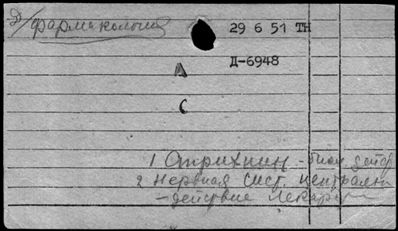 Д/фармакология
29 6 51 ТН
Д-6948
А
С
1 Стрихнин - биол. действ
2 Нервная сист. централь
- действие лекарств